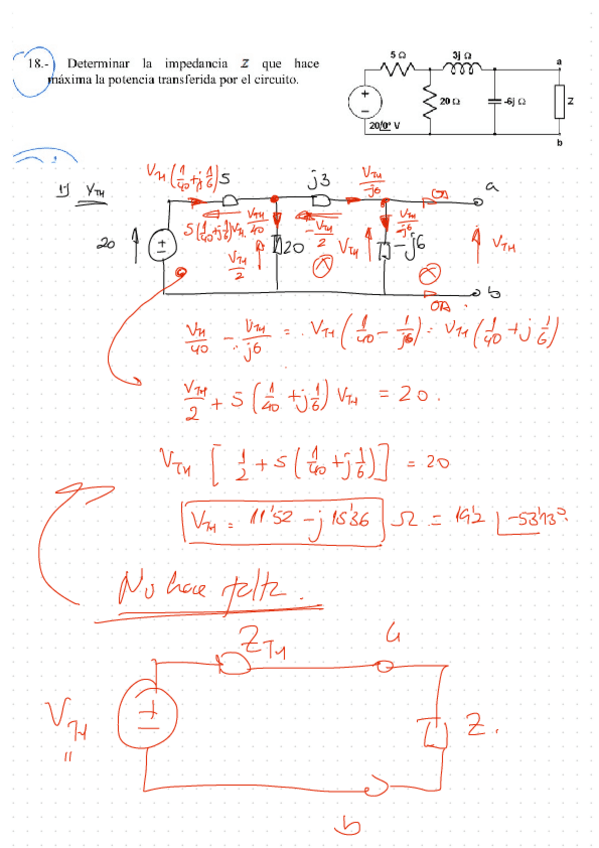 18.- Determinar la impedancia Z que hace
máxima la potencia transferida por el circuito.
5 Ω
3j Ω
a
+
20 Ω
-6j Ω
Z
-
20/0° V
b
1) V_TH
V_TH (1/40 + j 1/6)
5
j3
V_TH/-j6
0A
a
5(1/40 + j 1/6) V_TH
V_TH/40
-V_TH/2
V_TH/-j6
20
V_TH/2
20
V_TH
-j6
V_TH
0A
b
V_TH/40 - V_TH/j6 = V_TH (1/40 - 1/j6) = V_TH (1/40 + j 1/6)
V_TH/2 + 5 (1/40 + j 1/6) V_TH = 20.
V_TH [ 1/2 + 5 (1/40 + j 1/6) ] = 20
V_TH = 11'52 - j 15'36 Ω = 19'2 |-53'13°
No hace falta.
Z_TH
a
V_TH
+
-
Z.
b